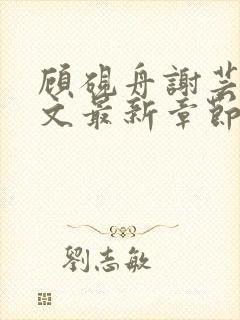 顧硯舟謝芸
文最新章節
劉志敏